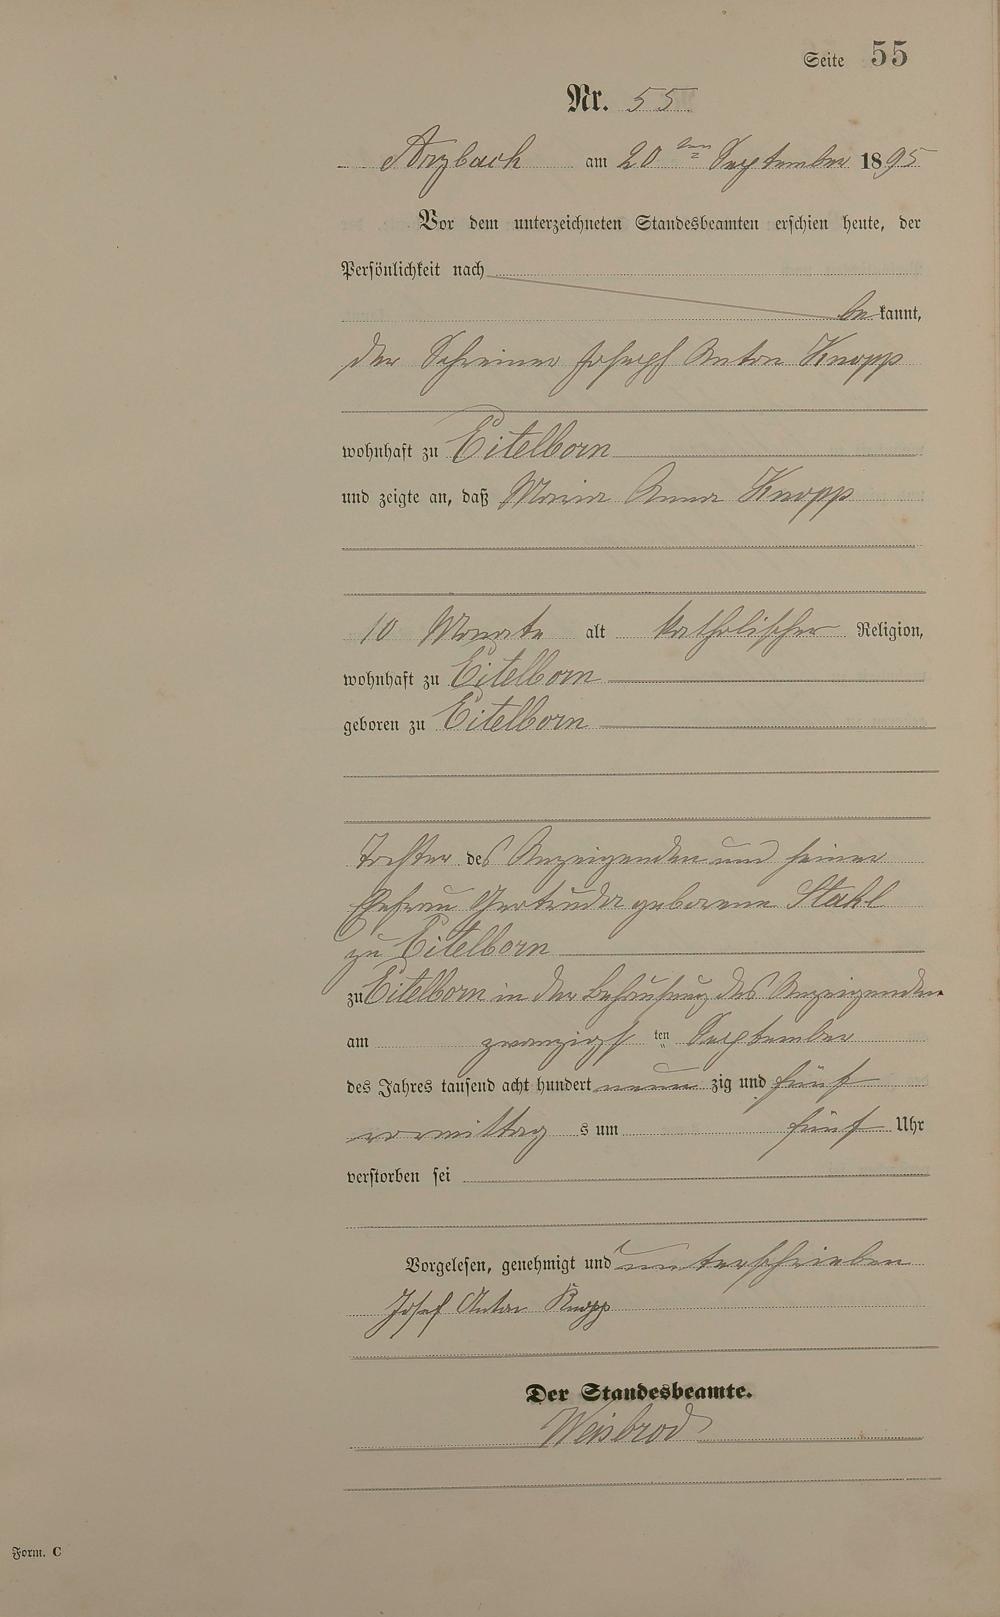 Seite 55
Nr. 55.
Arzbach am 20ten September 1895
Vor dem unterzeichneten Standesbeamten erschien heute, der
Persönlichkeit nach
bekannt,
der Schreiner Joseph Anton Knopp
wohnhaft zu Eitelborn
und zeigte an, daß Maria Anna Knopp
10 Monate alt katholischer Religion,
wohnhaft zu Eitelborn
geboren zu Eitelborn
Tochter des Anzeigenden und seiner
Ehefrau Gertruda geborene Stahl
zu Eitelborn
zu Eitelborn in der Behausung des Anzeigenden
am zwanzigsten September
des Jahres tausend acht hundert neunzig und fünf
vormittags um fünf Uhr
verstorben sei
Vorgelesen, genehmigt und unterschrieben
Josef Anton Knopp
Der Standesbeamte.
Weisbrod
Form. C